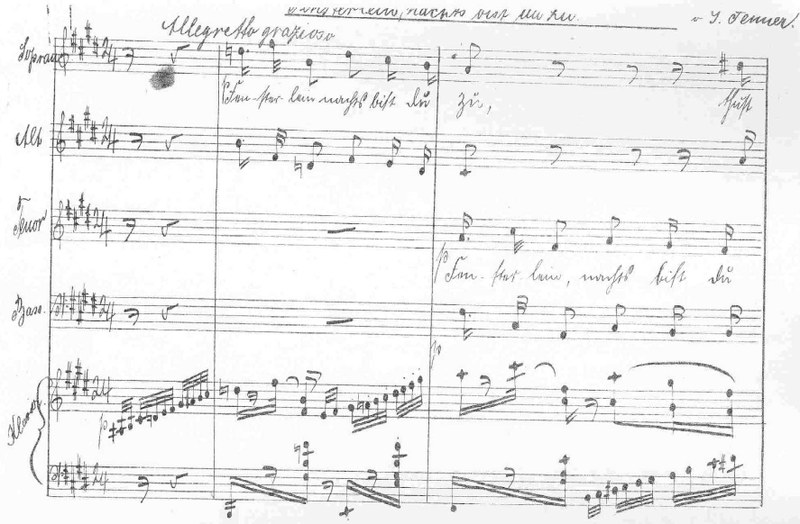 Fensterlein, nachts bist du zu.
v. G. Jenner.
Allegretto grazioso
Sopran
Fen-ster-lein nachts bist du zu, thust
Alt
Tenor
p Fen-ster-lein, nachts bist du
Bass.
p
Klavier
p